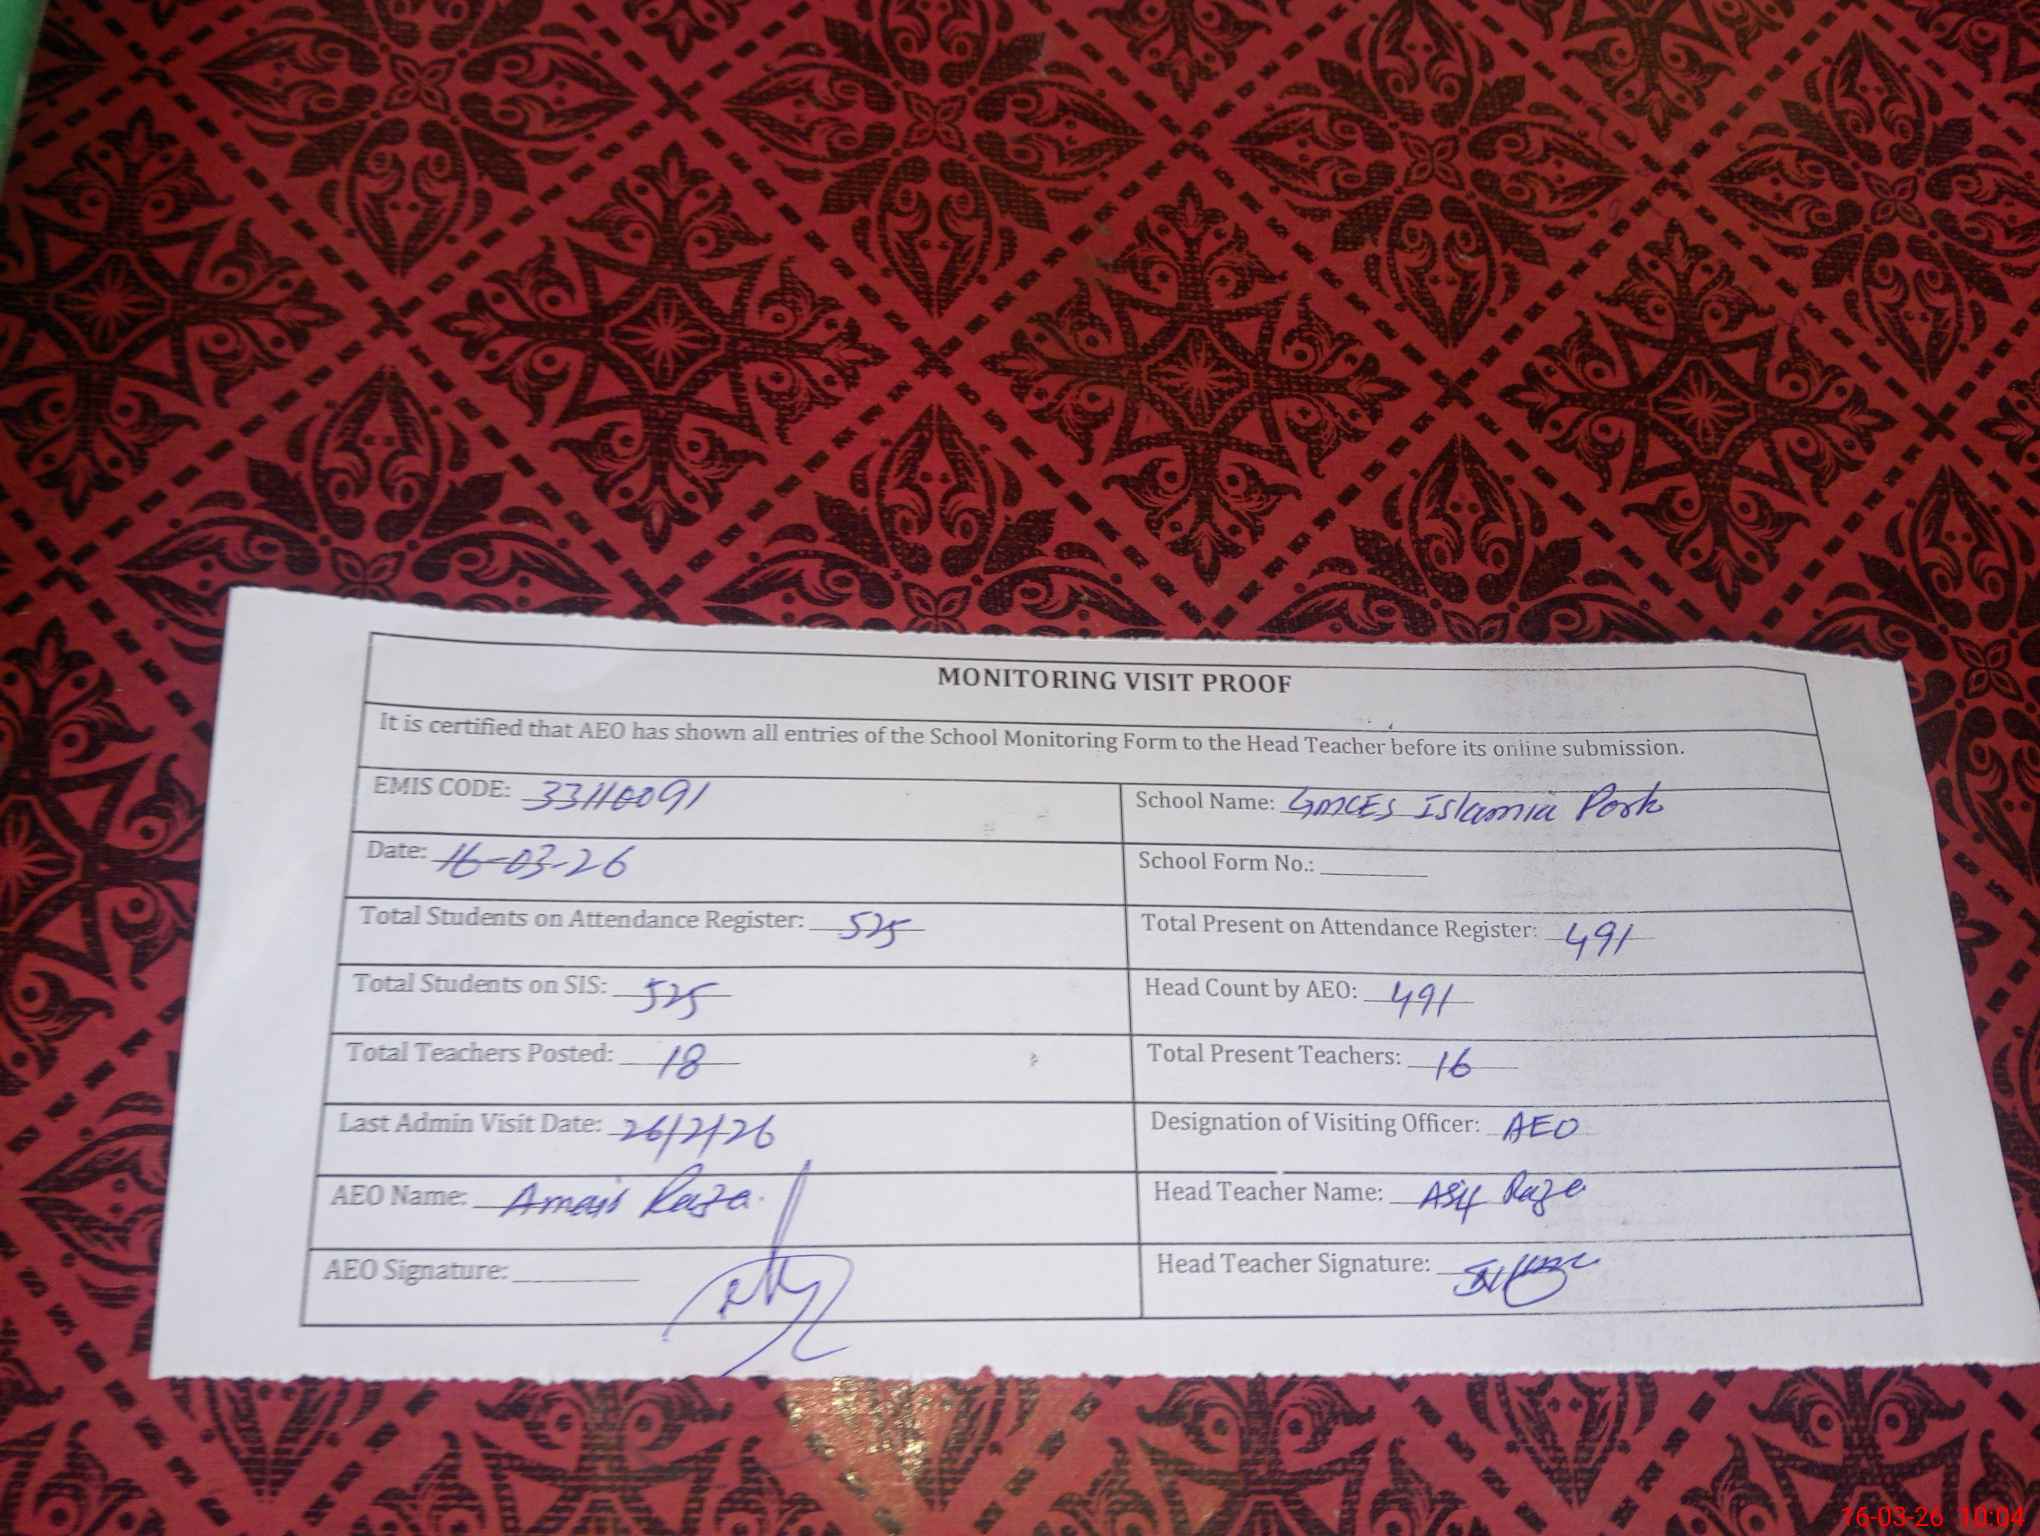 MONITORING VISIT PROOF
It is certified that AEO has shown all entries of the School Monitoring Form to the Head Teacher before its online submission.
EMIS CODE: 33110091
School Name: GMCES Islamia Park
Date: 16-03-26
School Form No.:
Total Students on Attendance Register: 525
Total Present on Attendance Register: 491
Total Students on SIS: 525
Head Count by AEO: 491
Total Teachers Posted: 18
Total Present Teachers: 16
Last Admin Visit Date: 26/2/26
Designation of Visiting Officer: AEO
AEO Name: Raza
Head Teacher Name: Asif Raza
AEO Signature:
Head Teacher Signature:
16-03-26 10:04